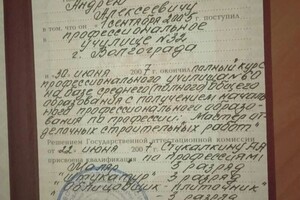 Андрею
Алексеевичу
в том, что он 1 сентября 2005 г. поступил
в профессиональное
училище №32
г. Волгограда
и "30" июня 2007 г. окончил полный курс
профессионального училища
на базе среднего (полного) общего
образования с получением начального
профессионального образо-
вания по профессии: "Мастер от-
делочных строительных работ"
Решением Государственной аттестационной комиссии
от 22 июня 2007 г.
присвоена квалификация по профессиям:
Маляр разряд
"Штукатур" 3 разряд
"Облицовщик-плиточник"
разряд